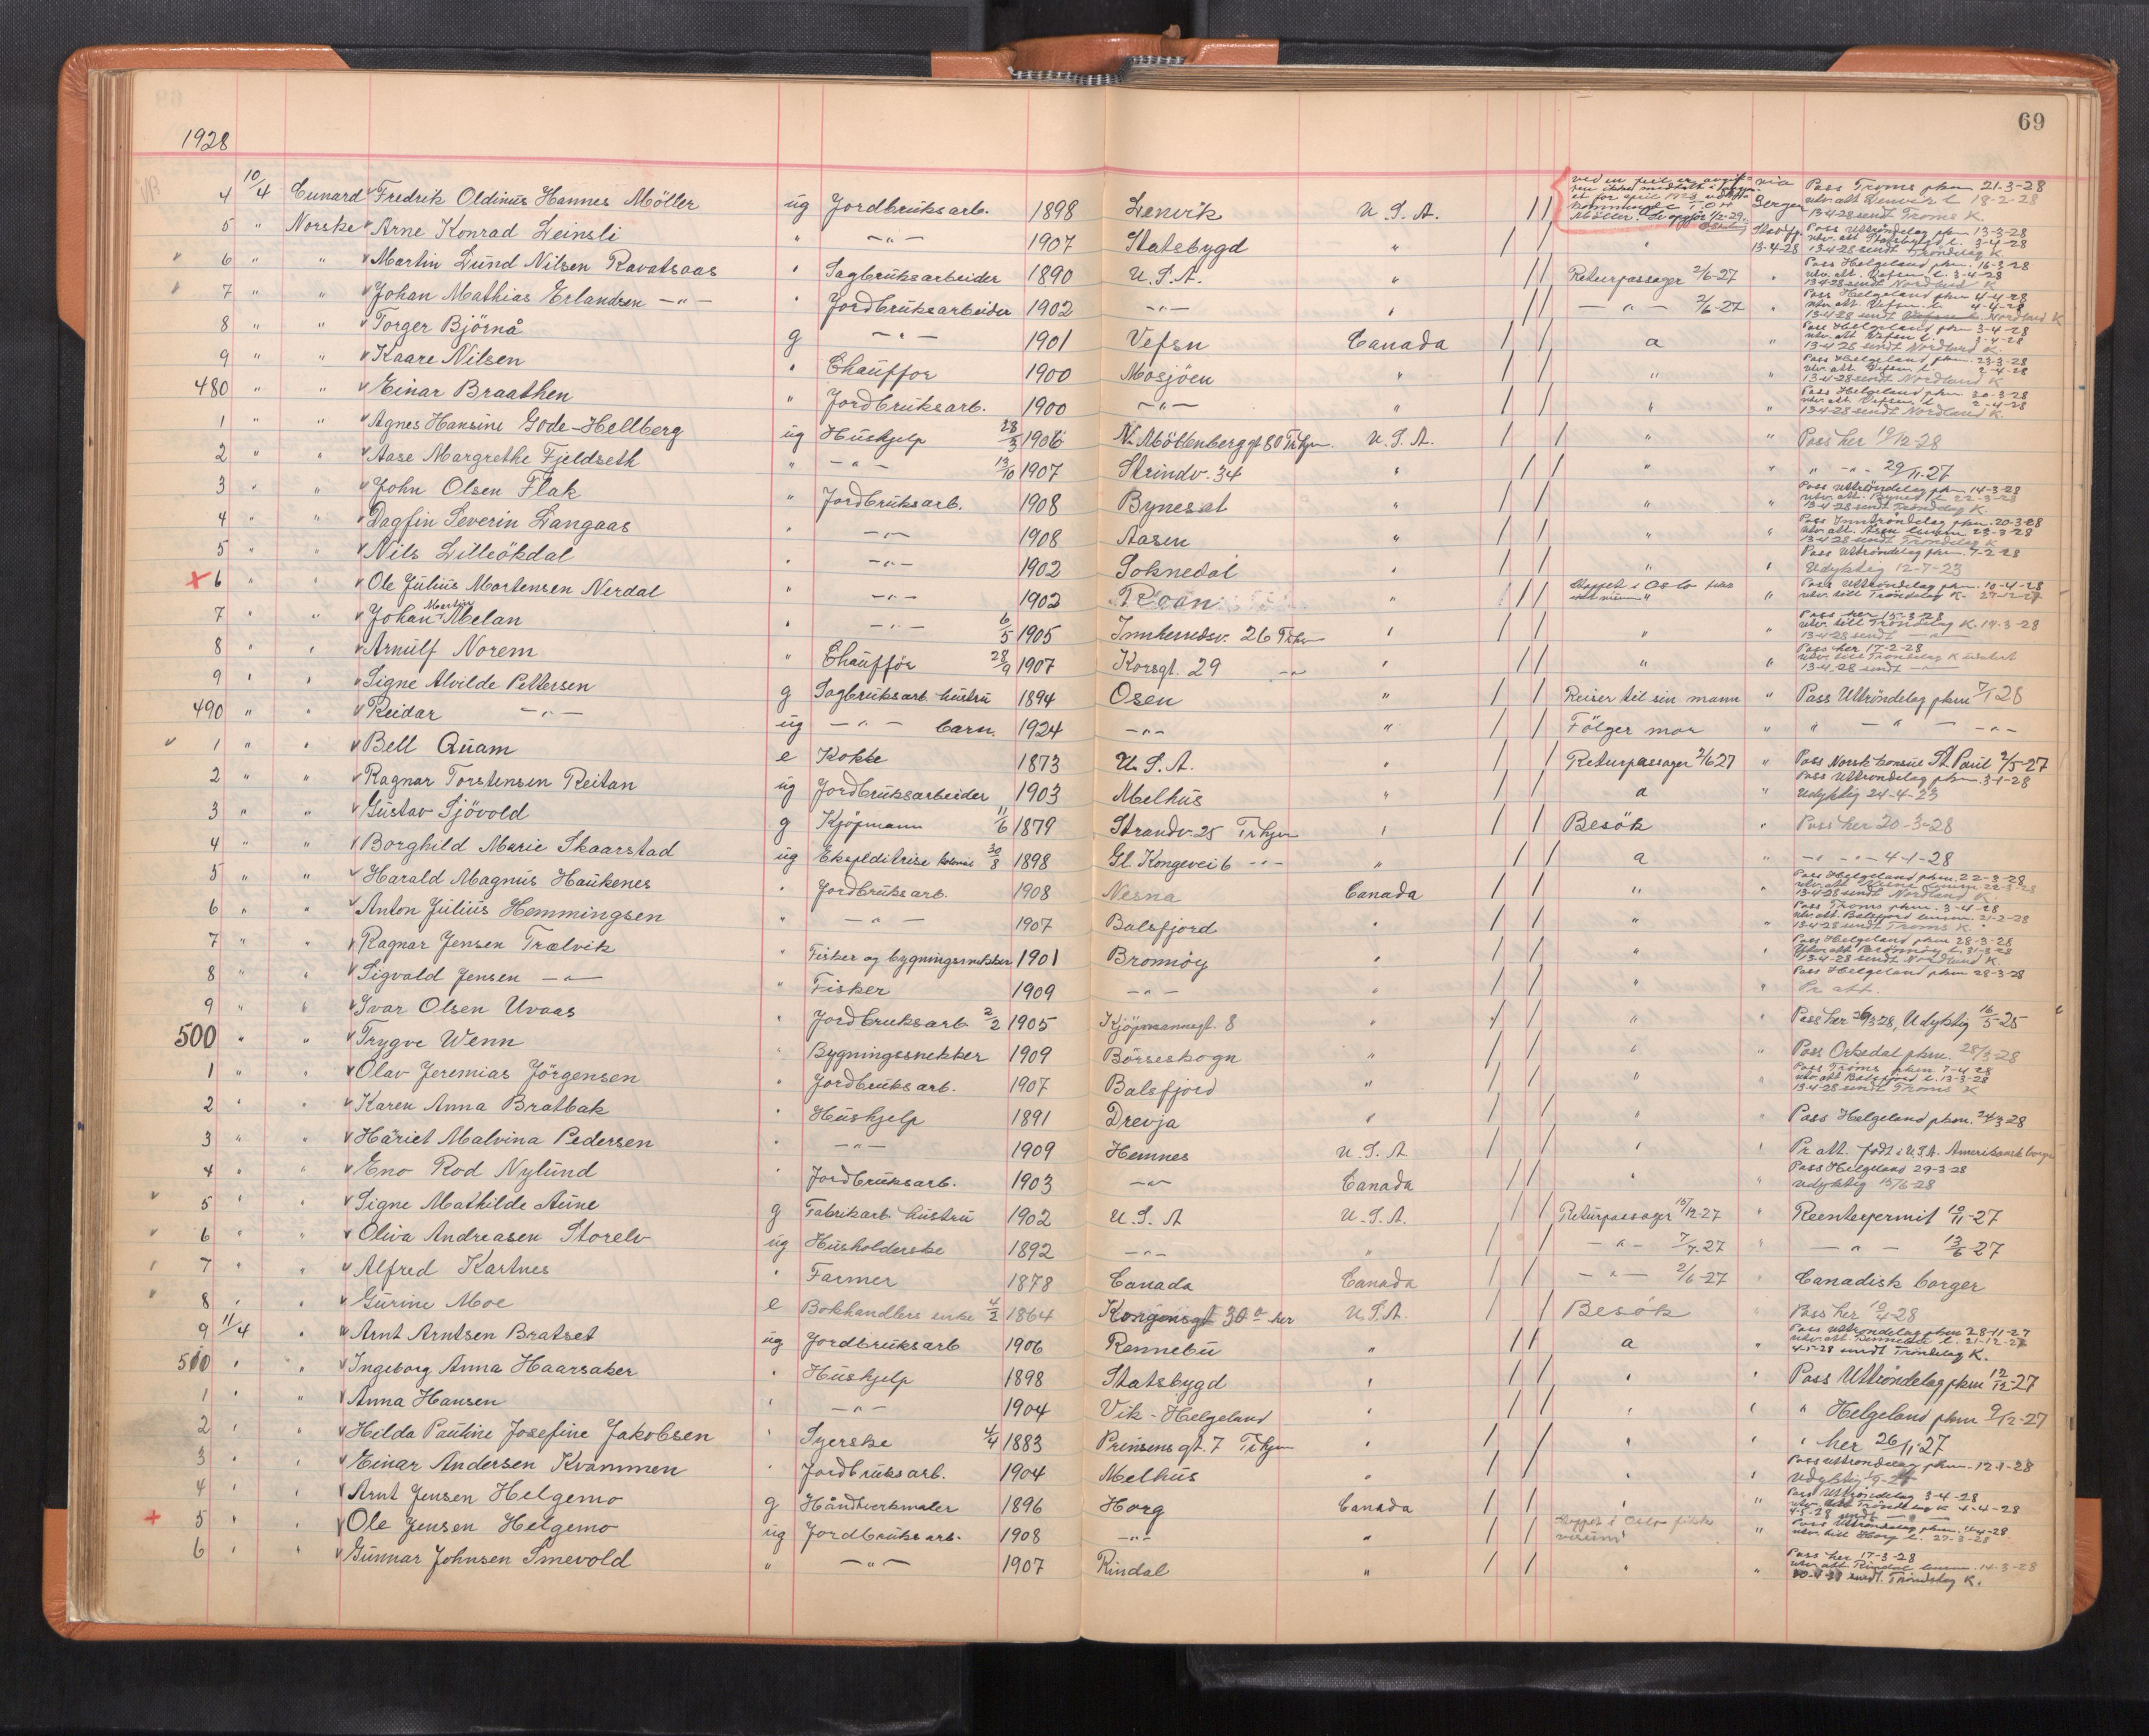 69
1928
4 10/4 Cunard Fredrik Oldinus Hannes Möller ug Jordbruksarb. 1898 Lenvik U.S.A. via Bergen Pass Troms pkm 21-3-28 utv. att Lenvik l 18-2-28 13-4-28 sendt Troms K.
5 " Norske Arne Konrad Leinsli " -"- 1907 Statsbygd " " 13-4-28 Pass Uttröndelag pkm 13-3-28 utv. att Statsbygd l. 3-4-28 13-4-28 sendt Tröndelag K
6 " " Martin Lund Nilsen Ravatsaas " Sagbruksarbeider 1890 U.S.A. " Returpassager 2/6-27 " Pass Helgeland pkm. 16-3-28 utv. att. Vefsn l. 3-4-28 13-4-28 sendt Nordland K
7 " " Johan Mathias Erlandsen -"- " Jordbruksarbeider 1902 -"- " -"- 2/6-27 " Pass Helgeland pkm 4-4-28 utv. att Vefsn l. 4-4-28 13-4-28 sendt Nordland K
8 " " Torger Björnå g -"- 1901 Vefsn Canada a " Pass Helgeland pkm 3-4-28 utv. att Vefsn l. 3-4-28 13-4-28 sendt Nordland K.
9 " " Kaare Nilsen " Chauffor 1900 Mosjöen " " " Pass Helgeland pkm. 23-3-28 utv. att. Vefsn l 2-4-28 13-4-28 sendt Nordland K
480 " " Einar Braathen " Jordbruksarb. 1900 -"- " " " Pass Helgeland pkm. 30-3-28 utv. att Vefsn l 2-4-28 13-4-28 sendt Nordland K.
1 " " Agnes Hansine Gode-Hellberg ug Hushjelp 28/3 1906 N. Möllenberggt 80 Trhjm. U.S.A. " " Pass her 10/12-28
2 " " Aase Margrethe Fjeldseth " -"- 13/10 1907 Strindv. 34 " " " " -"- 29/11-27
3 " " John Olsen Flak " Jordbruksarb. 1908 Byneset " " " Pass Uttröndelag pkm 14-3-28 utv. att. Byneset l 22-3-28 13-4-28 sendt Tröndelag K.
4 " " Dagfin Severin Langaas " -"- 1908 Aasen " " " Pass Inntröndelag pkm. 20-3-28 utv. att. Åsen lensm 23-3-28 13-4-28 sendt Tröndelag K
5 " " Nils Lilleökdal " -"- 1902 Soknedal " " " Pass Uttröndelag pkm. 7-2-28 Udyktig 12-7-23
6 " " Ole Julius Mortensen Nerdal " -"- 1902 Roan " Stoppet i Oslo " Pass Uttröndelag pkm. 10-4-28 utv. till Tröndelag K. 27-12-27
7 " " Johan Martin Melan " -"- 6/5 1905 Innherredsv. 26 Trhjm " " " Pass her 15-3-28 utv. till Tröndelag K. 19-3-28 13-4-28 sendt -"-
8 " " Arnulf Norem " Chaufför 28/9 1907 Korsgt. 29 -"- " " " Pass her 17-2-28 utv. till Tröndelag K 13-4-28 sendt -"-
9 " " Signe Alvilde Pettersen g Sagbruksarb. hustru 1894 Osen " Reiser til sin mann " Pass Uttröndelag pkm 7/1 28
490 " " Reidar -"- ug -"- barn. 1924 -"- " Fölger mor " " -"- -"-
1 " " Bell Quam e Kokke 1873 U.S.A. " Returpassager 2/6 27 " Pass Norsk konsul St. Paul 2/5-27
2 " " Ragnar Torstensen Reitan ug Jordbruksarbeider 1903 Melhus " a " Pass Uttröndelag pkm. 3-1-28 Udyktig 24-4-23
3 " " Gustav Sjövold g Kjöpmann 11/6 1879 Strandv. 25 Trhjm " Besök " Pass her 20-3-28
4 " " Borghild Marie Skaarstad ug Ekspeditrise 30/8 1898 Gl. Kongevei 6 -"- " a " -"- -"- 4-1-28
5 " " Harald Magnus Haukenes " Jordbruksarb. 1908 Nesna Canada " " Pass Helgeland pkm. 22-3-28 utv. att Nesna lensm 22-3-28 13-4-28 sendt Nordland K
6 " " Anton Julius Hemmingsen " -"- 1907 Balsfjord " " " Pass Troms pkm. 3-4-28 utv. att. Balsfjord lensm. 21-2-28 13-4-28 sendt Troms K.
7 " " Ragnar Jensen Trælvik " Fisker og bygningssnekker 1901 Bronnöy " " " Pass Helgeland pkm 28-3-28 Utv. att Brönnöy l. 31-3-28 13-4-28 sendt Nordland K
8 " " Sigvald Jensen -"- " Fisker 1909 -"- " " " Pass Helgeland pkm 28-3-28 Pr att.
9 " " Ivar Olsen Uvaas " Jordbruksarb 2/2 1905 Kjöpmannsgt. 8 " " " Pass her 26/3 28, Udyktig 16/5-25
500 " " Trygve Wenn " Bygningssnekker 1909 Börseskogn " " " Pass Orkedal pkm. 28/3-28
1 " " Olav Jeremias Jörgensen " Jordbruksarb. 1907 Balsfjord " " " Pass Troms pkm 7-4 28 utv. att Balsfjord l. 13-3-28 13-4-28 sendt Troms K
2 " " Karen Anna Bratbak " Hushjelp 1891 Drevja " " Pass Helgeland pkm. 24/3 28
3 " " Hariet Malvina Pedersen " -"- 1909 Hemnes U.S.A. " " Pr. att. født i U.S.A. Amerikansk borger
4 " " Eno Rod Nylund " Jordbruksarb. 1903 -"- Canada " " Pass Helgeland 29-3-28 Udyktig 15/6-28
5 " " Signe Mathilde Aune g Fabrikarb. hustru 1902 U.S.A U.S.A. Returpassager 15/12-27 " Reenterpermit 10/11-27
6 " " Oliva Andreasen Storelv ug Husholderske 1892 -"- " -"- 7/7-27 " -"- 13/6-27
7 " " Alfred Kartnes " Farmer 1878 Canada Canada -"- 2/6-27 " Canadisk borger
8 " " Gurine Moe e Bokhandlers enke 4/2 1864 Kongensgt 30a her U.S.A. Besök " Pass her 10/4-28
9 11/4 " Arnt Arntsen Bratset ug Jordbruksarb 1906 Rennebu " a " Pass Uttröndelag pkm 28-11-27 utv. att. Rennebu l. 21-12-27 4-5-28 sendt Tröndelag K.
510 " " Ingeborg Anna Haarsaker " Hushjelp 1898 Statsbygd " " " Pass Uttröndelag pkm 12/12-27
1 " " Anna Hansen " -"- 1904 Vik - Helgeland " " " " Helgeland pkm 9/12-27
2 " " Helda Pauline Josefine Jakobsen " Syerske 4/4 1883 Prinsens gt. 7 Trhjm " " " " her 26/11-27
3 " " Einar Andersen Kvammen " Jordbruksarb. 1904 Melhus " " " Pass Uttröndelag pkm. 12-1-28 Udyktig
4 " " Arnt Jensen Helgemo g Håndtverkmaler 1896 Horg Canada " " Pass Uttröndelag 3-4-28 utv. att Tröndelag K 4-4-28 4-5-28 sendt -"-
5 " " Ole Jensen Helgemo ug Jordbruksarb. 1908 -"- " Stoppet i Oslo " Pass Uttröndelag pkm. 4-4-28 utv. till Horg l. 27-3-28
6 " " Gunnar Johnsen Smevold " -"- 1907 Rindal " " " Pass her 17-3-28 utv. att. Rindal lensm. 14-3-28 sendt. Tröndelag K.